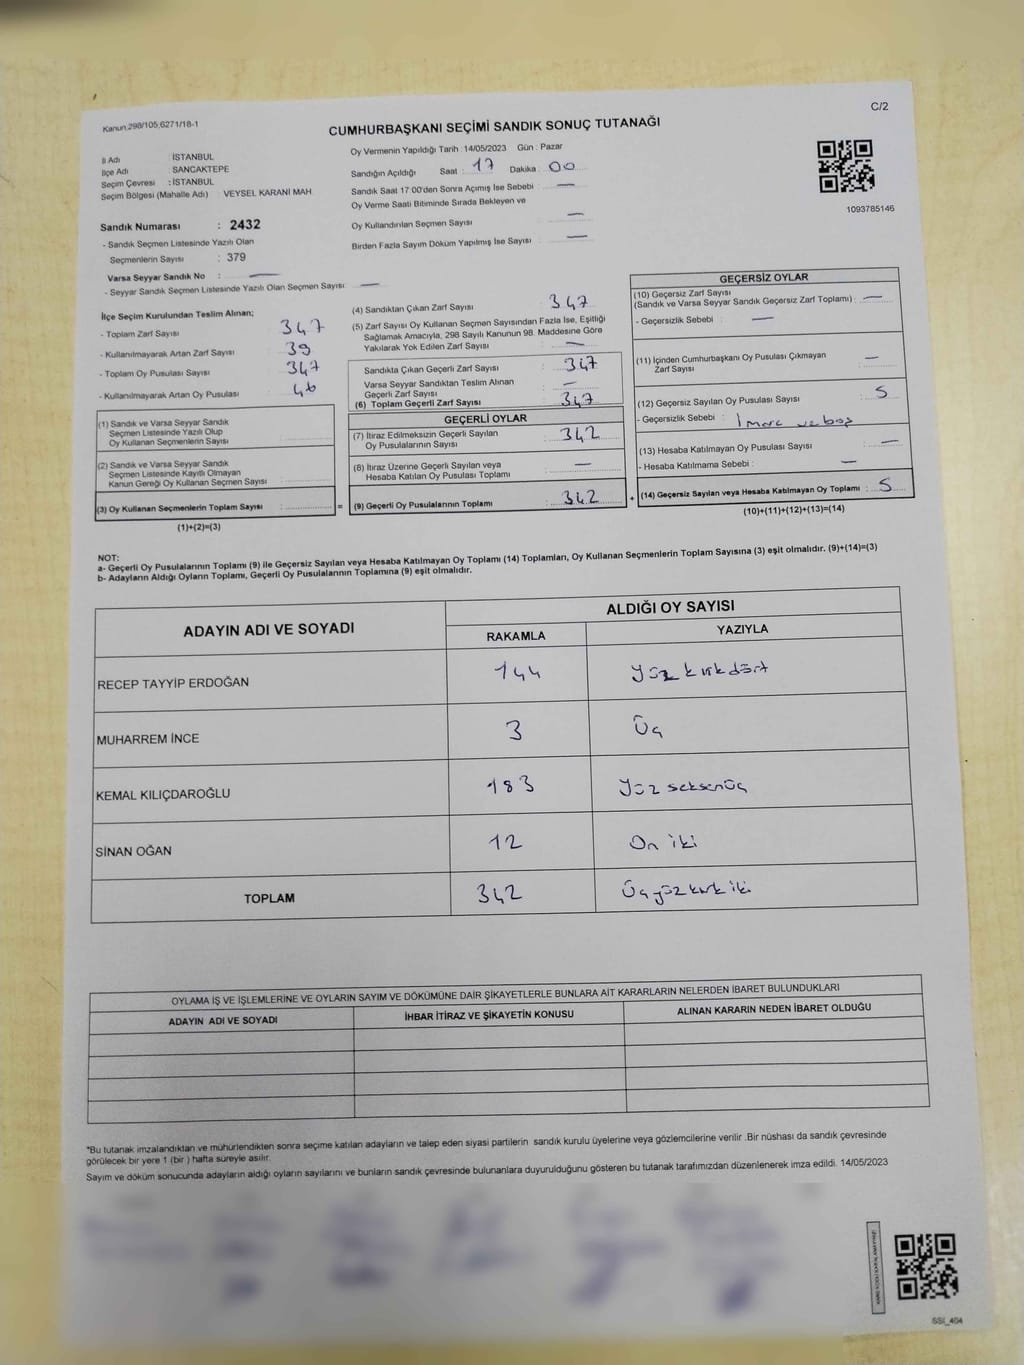 C/2
Kanun,298/105,6271/18-1
CUMHURBAŞKANI SEÇİMİ SANDIK SONUÇ TUTANAĞI
İl Adı : İSTANBUL
İlçe Adı : SANCAKTEPE
Seçim Çevresi : İSTANBUL
Seçim Bölgesi (Mahalle Adı) : VEYSEL KARANİ MAH
Oy Vermenin Yapıldığı Tarih : 14/05/2023 Gün : Pazar
Sandığın Açıldığı Saat : 17 Dakika : 00
Sandık Saat 17 00'den Sonra Açımış İse Sebebi : —
Oy Verme Saati Bitiminde Sırada Bekleyen ve
Oy Kullandırılan Seçmen Sayısı : —
Birden Fazla Sayım Döküm Yapılmış İse Sayısı : —
1093785146
Sandık Numarası : 2432
- Sandık Seçmen Listesinde Yazılı Olan
Seçmenlerin Sayısı : 379
Varsa Seyyar Sandık No : —
- Seyyar Sandık Seçmen Listesinde Yazılı Olan Seçmen Sayısı : —
İlçe Seçim Kurulundan Teslim Alınan;
- Toplam Zarf Sayısı : 347
- Kullanılmayarak Artan Zarf Sayısı : 39
- Toplam Oy Pusulası Sayısı : 347
- Kullanılmayarak Artan Oy Pusulası : 46
(1) Sandık ve Varsa Seyyar Sandık
Seçmen Listesinde Yazılı Olup
Oy Kullanan Seçmenlerin Sayısı :
(2) Sandık ve Varsa Seyyar Sandık
Seçmen Listesinde Kayıtlı Olmayan
Kanun Gereği Oy Kullanan Seçmen Sayısı :
(3) Oy Kullanan Seçmenlerin Toplam Sayısı :
(1)+(2)=(3)
(4) Sandıktan Çıkan Zarf Sayısı : 347
(5) Zarf Sayısı Oy Kullanan Seçmen Sayısından Fazla İse, Eşitliği
Sağlamak Amacıyla, 298 Sayılı Kanunun 98. Maddesine Göre
Yakılarak Yok Edilen Zarf Sayısı : —
Sandıkta Çıkan Geçerli Zarf Sayısı : 347
Varsa Seyyar Sandıktan Teslim Alınan
Geçerli Zarf Sayısı : —
(6) Toplam Geçerli Zarf Sayısı : 347
GEÇERLİ OYLAR
(7) İtiraz Edilmeksizin Geçerli Sayılan
Oy Pusulalarının Sayısı : 342
(8) İtiraz Üzerine Geçerli Sayılan veya
Hesaba Katılan Oy Pusulası Toplamı : —
= (9) Geçerli Oy Pusulalarının Toplamı : 342 +
GEÇERSİZ OYLAR
(10) Geçersiz Zarf Sayısı
(Sandık ve Varsa Seyyar Sandık Geçersiz Zarf Toplamı) : —
- Geçersizlik Sebebi : —
(11) İçinden Cumhurbaşkanı Oy Pusulası Çıkmayan
Zarf Sayısı : —
(12) Geçersiz Sayılan Oy Pusulası Sayısı : 5
- Geçersizlik Sebebi : ve boş
(13) Hesaba Katılmayan Oy Pusulası Sayısı : —
- Hesaba Katılmama Sebebi : —
(14) Geçersiz Sayılan veya Hesaba Katılmayan Oy Toplamı : 5
(10)+(11)+(12)+(13)=(14)
NOT:
a- Geçerli Oy Pusulalarının Toplamı (9) ile Geçersiz Sayılan veya Hesaba Katılmayan Oy Toplamı (14) Toplamları, Oy Kullanan Seçmenlerin Toplam Sayısına (3) eşit olmalıdır. (9)+(14)=(3)
b- Adayların Aldığı Oyların Toplamı, Geçerli Oy Pusulalarının Toplamına (9) eşit olmalıdır.
ADAYIN ADI VE SOYADI ALDIĞI OY SAYISI
RAKAMLA YAZIYLA
RECEP TAYYİP ERDOĞAN 144 Yüz kırkdört
MUHARREM İNCE 3 Üç
KEMAL KILIÇDAROĞLU 183 Yüz seksenüç
SİNAN OĞAN 12 On iki
TOPLAM 342 Üçyüz kırk iki
OYLAMA İŞ VE İŞLEMLERİNE VE OYLARIN SAYIM VE DÖKÜMÜNE DAİR ŞİKAYETLERLE BUNLARA AİT KARARLARIN NELERDEN İBARET BULUNDUKLARI
ADAYIN ADI VE SOYADI İHBAR İTİRAZ VE ŞİKAYETİN KONUSU ALINAN KARARIN NEDEN İBARET OLDUĞU
*Bu tutanak imzalandıktan ve mühürlendikten sonra seçime katılan adayların ve talep eden siyasi partilerin sandık kurulu üyelerine veya gözlemcilerine verilir .Bir nüshası da sandık çevresinde
görülecek bir yere 1 (bir ) hafta süreyle asılır.
Sayım ve döküm sonucunda adayların aldığı oyların sayılarını ve bunların sandık çevresinde bulunanlara duyurulduğunu gösteren bu tutanak tarafımızdan düzenlenerek imza edildi. 14/05/2023
SSI_464